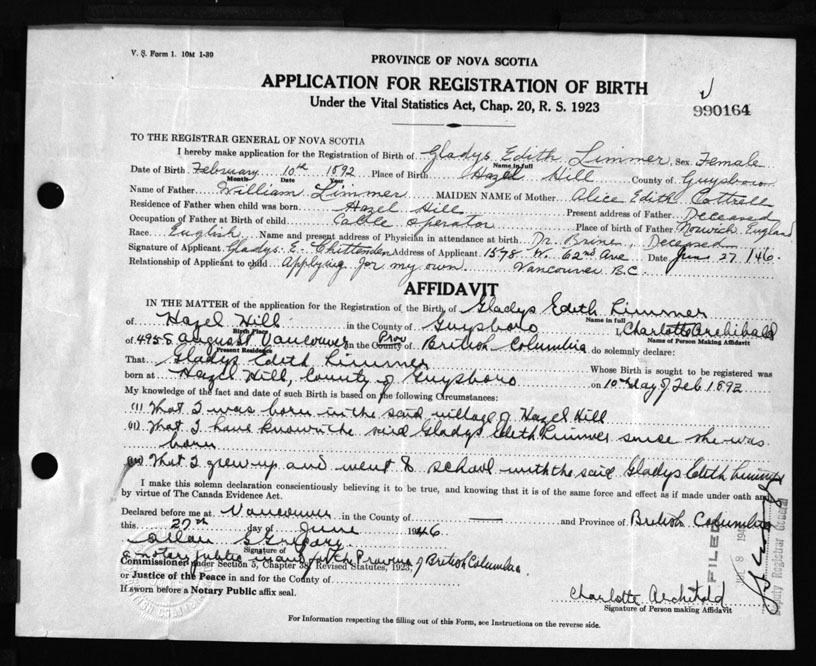 V. S. Form 1. 10M 1-39
PROVINCE OF NOVA SCOTIA
APPLICATION FOR REGISTRATION OF BIRTH
Under the Vital Statistics Act, Chap. 20, R. S. 1923
990164
TO THE REGISTRAR GENERAL OF NOVA SCOTIA
I hereby make application for the Registration of Birth of Gladys Edith Limmer Sex Female
Name in full
Date of Birth February 10th 1892 Place of Birth Hazel Hill County of Guysboro
Month Date Year
Name of Father William Limmer MAIDEN NAME of Mother Alice Edith Cottrell
Residence of Father when child was born Hazel Hill Present address of Father Deceased
Occupation of Father at Birth of child Cable operator Place of birth of Father Norwich England
Race English Name and present address of Physician in attendance at birth Dr. Brine, Deceased
Signature of Applicant Gladys E. Chittenden Address of Applicant 1578 W. 62nd Ave Date June 27/46.
Relationship of Applicant to child Applying for my own. Vancouver B.C.
AFFIDAVIT
IN THE MATTER of the application for the Registration of the Birth of Gladys Edith Limmer
Name in full
of Hazel Hill in the County of Guysboro I, Charlotte Archibald
Birth Place Name of Person Making Affidavit
of 4958 August Vancouver in the County Prov of British Columbia do solemnly declare:
Present Residence
That Gladys Edith Limmer Whose Birth is sought to be registered was
born at Hazel Hill, County of Guysboro on 10th day of Feb 1892
My knowledge of the fact and date of such Birth is based on the following Circumstances:
(1) That I was born in the said village of Hazel Hill
(11) That I have known the said Gladys Edith Limmer since she was
born
(111) That I grew up and went to school with the said Gladys Edith Limmer
I make this solemn declaration conscientiously believing it to be true, and knowing that it is of the same force and effect as if made under oath and
by virtue of The Canada Evidence Act.
Declared before me at Vancouver in the County of — and Province of British Columbia
this 27th day of June 1946.
Allan S Gregory
Signature of
a notary public in and for the Province of British Columbia
Commissioner under Section 5, Chapter 38, Revised Statutes, 1923,
or Justice of the Peace in and for the County of
If sworn before a Notary Public affix seal.
Charlotte Archibald
Signature of Person making Affidavit
FILED
Deputy Registrar General
For Information respecting the filling out of this Form, see Instructions on the reverse side.